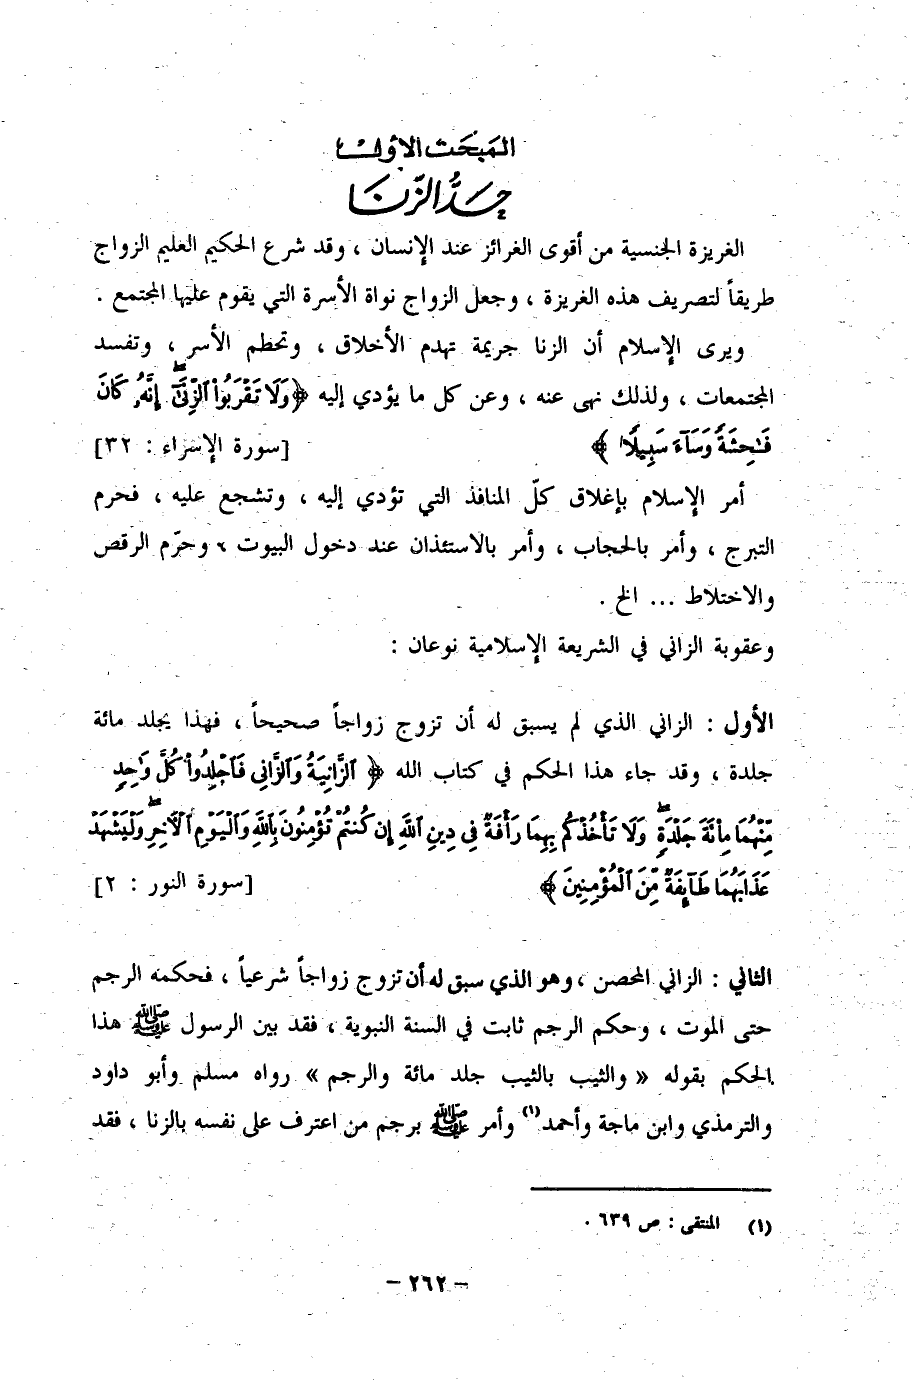 المبحث الأول
حدُّ الزِّنَا
الغريزة الجنسية من أقوى الغرائز عند الإنسان ، وقد شرع الحكيم العليم الزواج
طريقاً لتصريف هذه الغريزة ، وجعل الزواج نواة الأسرة التي يقوم عليها المجتمع .
ويرى الإسلام أن الزنا جريمة تهدم الأخلاق ، وتحطم الأسر ، وتفسد
المجتمعات ، ولذلك نهى عنه ، وعن كل ما يؤدي إليه ﴿وَلَا تَقْرَبُوا۟ ٱلزِّنَىٰٓ ۖ إِنَّهُۥ كَانَ
فَـٰحِشَةً وَسَآءَ سَبِيلًا ﴾ [سورة الإسراء : ٣٢]
أمر الإسلام بإغلاق كلّ المنافذ التي تؤدي إليه ، وتشجع عليه ، فحرم
التبرج ، وأمر بالحجاب ، وأمر بالاستئذان عند دخول البيوت ، وحرّم الرقص
والاختلاط ... الخ .
وعقوبة الزاني في الشريعة الإسلامية نوعان :
الأول : الزاني الذي لم يسبق له أن تزوج زواجاً صحيحاً ، فهذا يجلد مائة
جلدة ، وقد جاء هذا الحكم في كتاب الله ﴿ ٱلزَّانِيَةُ وَٱلزَّانِى فَٱجْلِدُوا۟ كُلَّ وَٰحِدٍ
مِّنْهُمَا مِا۟ئَةَ جَلْدَةٍ ۖ وَلَا تَأْخُذْكُم بِهِمَا رَأْفَةٌ فِى دِينِ ٱللَّهِ إِن كُنتُمْ تُؤْمِنُونَ بِٱللَّهِ وَٱلْيَوْمِ ٱلْـَٔاخِرِ ۖ وَلْيَشْهَدْ
عَذَابَهُمَا طَآئِفَةٌ مِّنَ ٱلْمُؤْمِنِينَ ﴾ [سورة النور : ٢]
الثاني : الزاني المحصن ، وهو الذي سبق له أن تزوج زواجاً شرعياً ، فحكمه الرجم
حتى الموت ، وحكم الرجم ثابت في السنة النبوية ، فقد بين الرسول ﷺ هذا
الحكم بقوله « والثيب بالثيب جلد مائة والرجم » رواه مسلم وأبو داود
والترمذي وابن ماجة وأحمد(١) وأمر ﷺ برجم من اعترف على نفسه بالزنا ، فقد
(١) المنتقى : ص ٦٣٩ .
– ٢٦٢ –